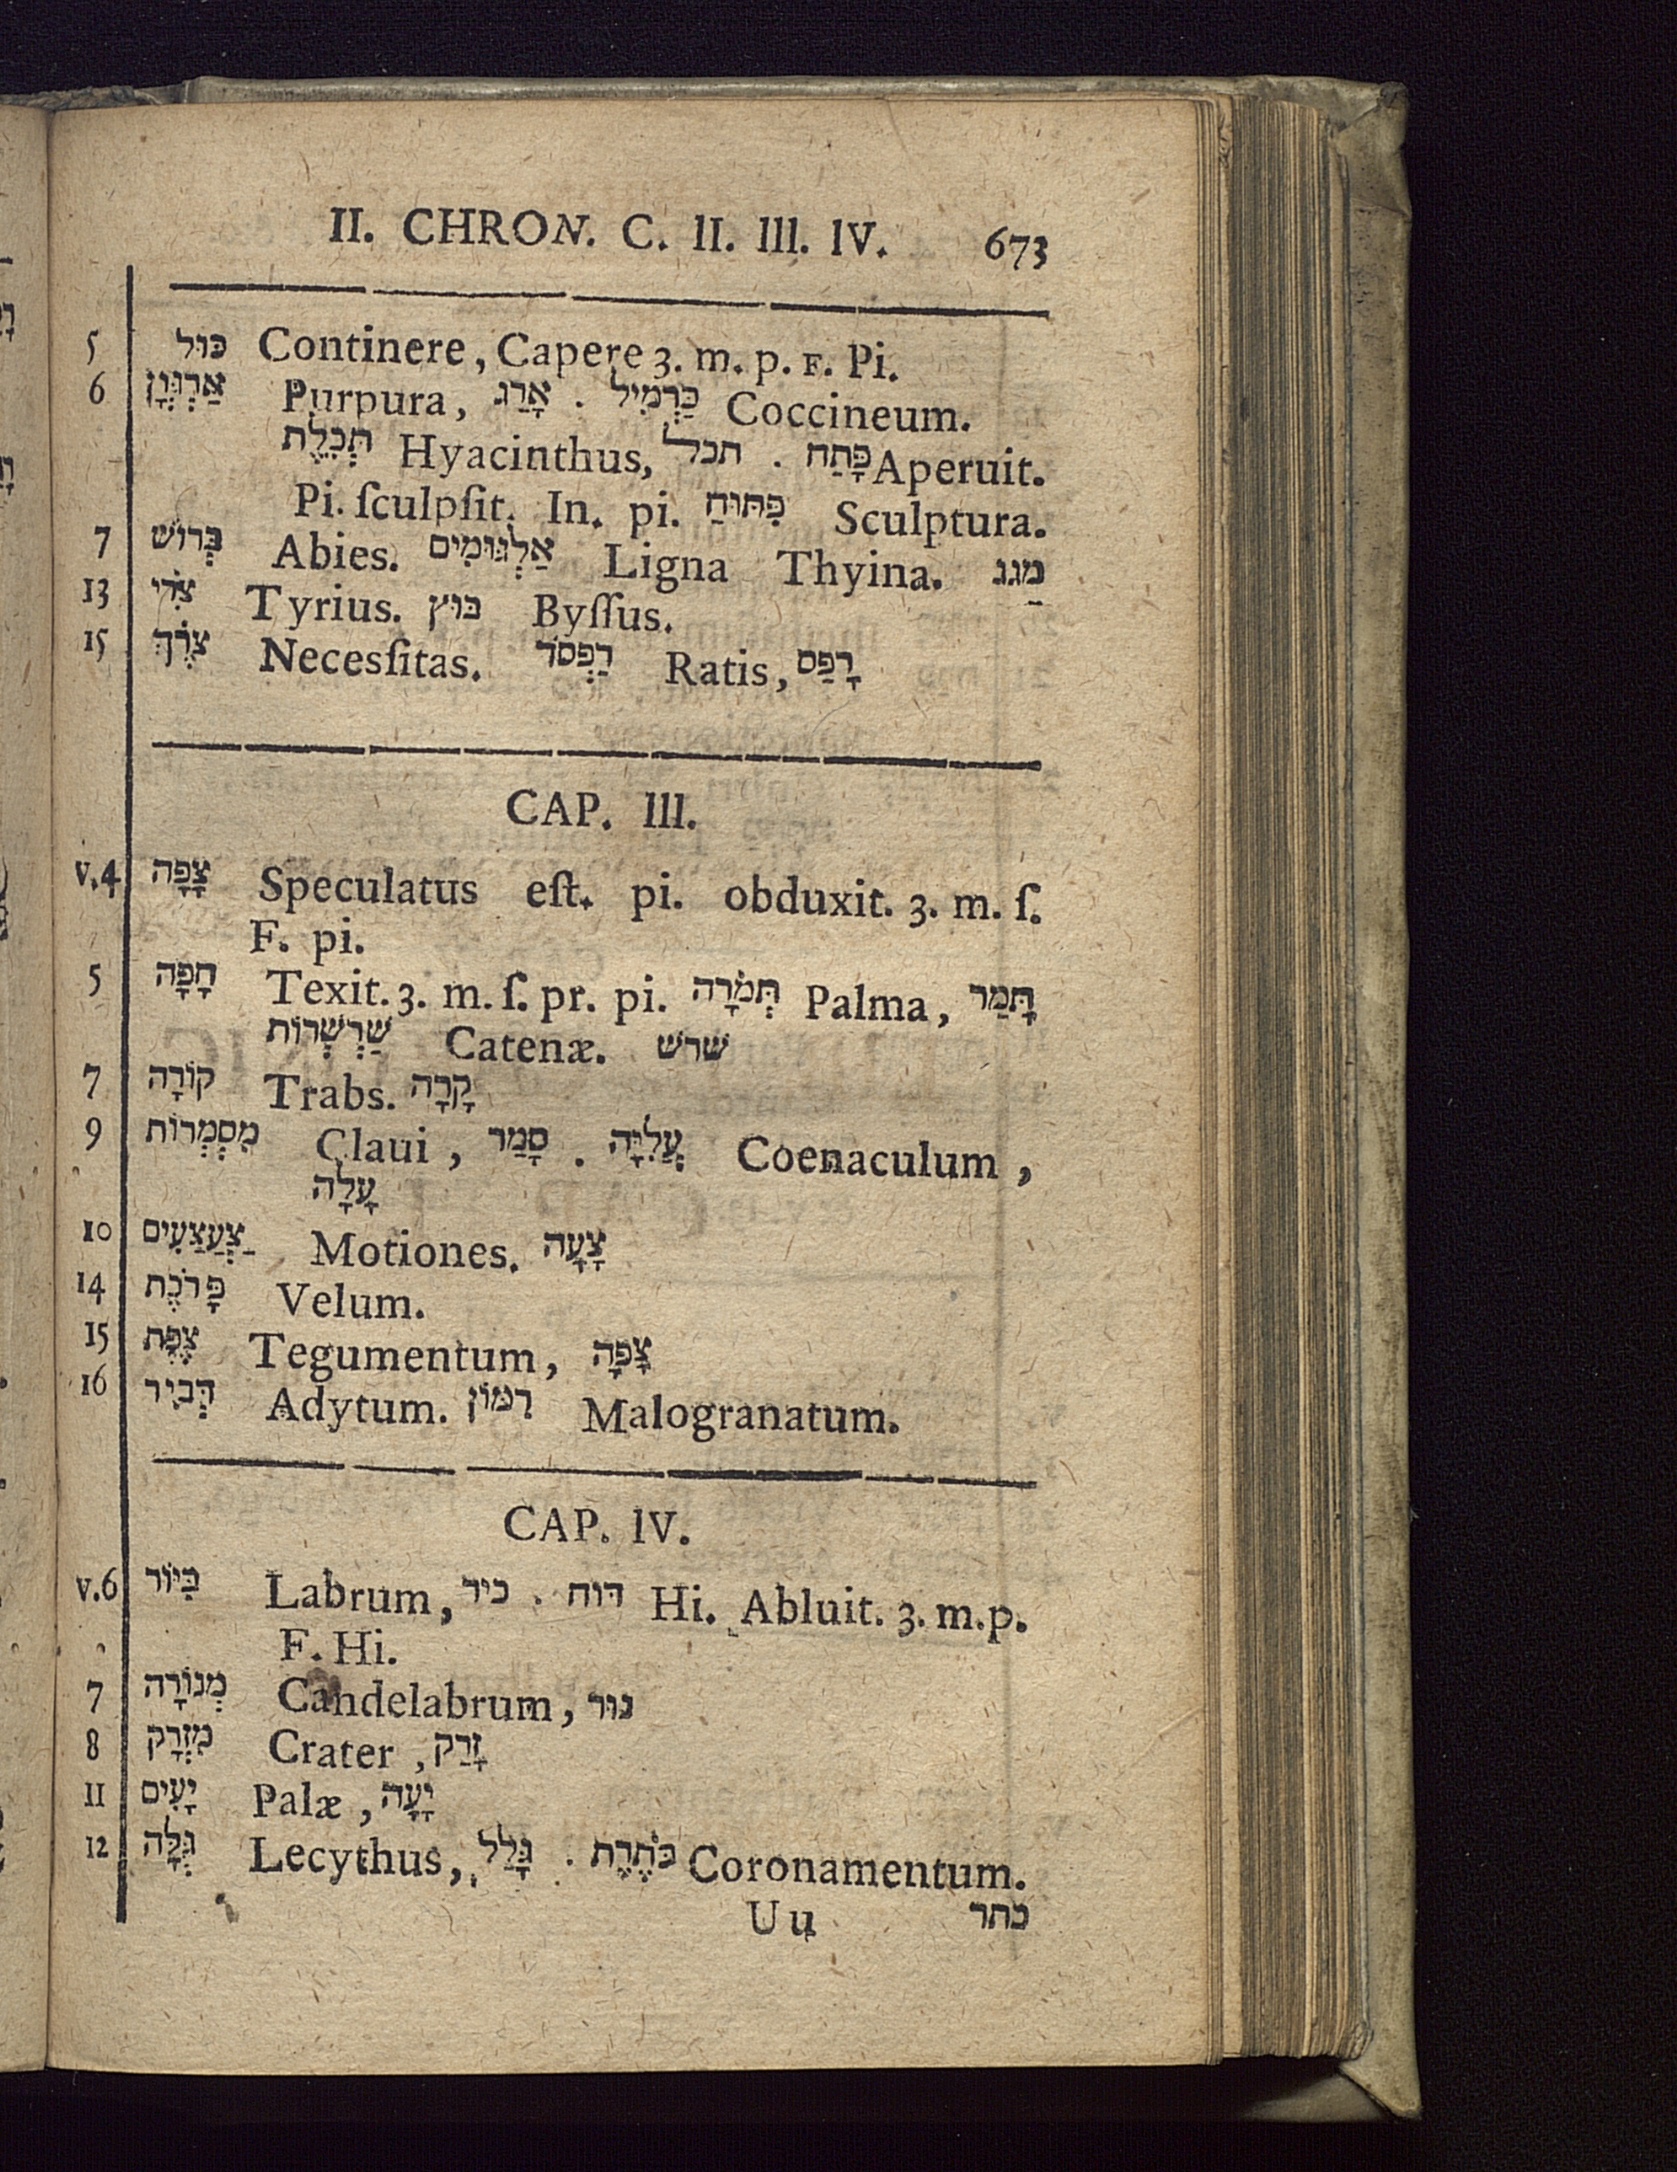 II. CHRON. C. II. III. IV. 673
5 כול Continere, Capere 3. m. p. F. Pi.
6 אַרְגְּוָן Purpura, אָרַג . כַּרְמִיל Coccineum.
תְּכֵלֶת Hyacinthus, תכל . פָּתַח Aperuit.
Pi. ſculpſit. In. pi. פִּתּוּחַ Sculptura.
7 בְּרוֹשׁ Abies. אַלְגּוּמִּים Ligna Thyina. מגג
13 צֹרִי Tyrius. בּוּץ Byſſus.
15 צֹרֶךְ Necesſitas. רַפְסֹד Ratis, רָפַס
CAP. III.
v.4 צָפָה Speculatus eſt. pi. obduxit. 3. m. ſ.
F. pi.
5 חָפָה Texit. 3. m. ſ. pr. pi. תִּמֹרָה Palma, תָּמַר
שַׁרְשְׁרוֹת Catenæ. שרש
7 קוֹרָה Trabs. קָרָה
9 מִסְמְרוֹת Claui, סָמַר . עֲלִיָּה Coenaculum,
עָלָה
10 צַעֲצֻעִים Motiones. צָעָה
14 פָּרֹכֶת Velum.
15 צֶפֶת Tegumentum, צָפָה
16 דְּבִיר Adytum. רִמּוֹן Malogranatum.
CAP. IV.
v.6 כִּיּוֹר Labrum, כיר . דוח Hi. Abluit. 3. m.p.
F. Hi.
7 מְנוֹרָה Candelabrum, נור
8 מִזְרָק Crater, זָרַק
11 יָעִים Palæ, יָעָה
12 גֻּלָּה Lecythus, גָּלַל . כֹּתֶרֶת Coronamentum.
Uu כתר